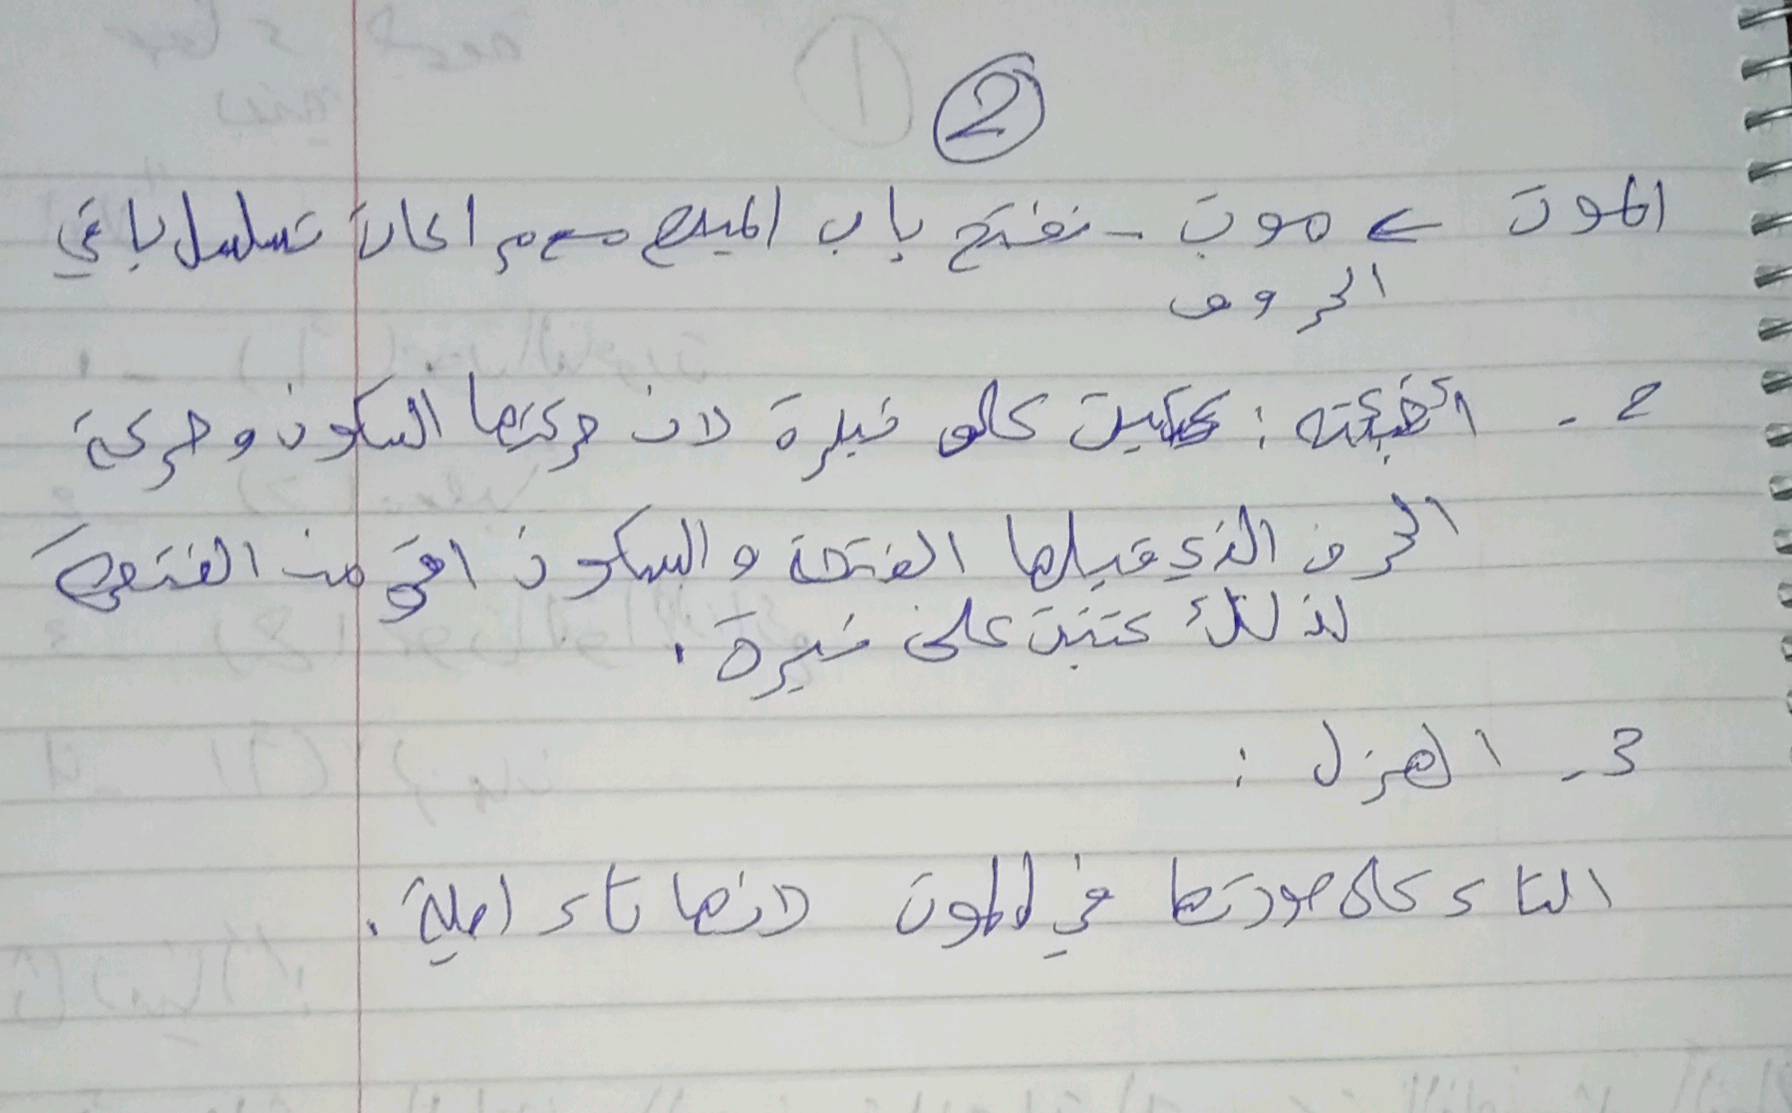 2
الموت ← موت - نفتح باب الميم مع مراعات تسلسل باقي
الحروف
2 - : كتبت على نبرة لان حركتها السكون وحركة
الحرف الذي قبلها الفتحة والسكون اقوى من الفتحة
لذلك كتبت على نبرة .
3 - الهزل :
التاء على صورتها في الموت لانها تاء اصلية .